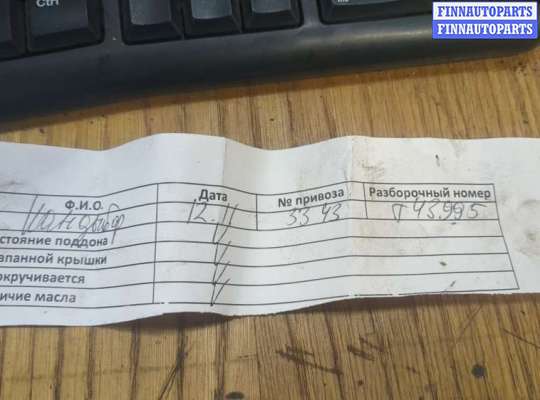 Ctrl
FINNAUTOPARTS
FINNAUTOPARTS
Ф.И.О. Дата № привоза Разборочный номер
12. 33 43 Т 43.995
стояние поддона
апанной крышки
окручивается
ичие масла